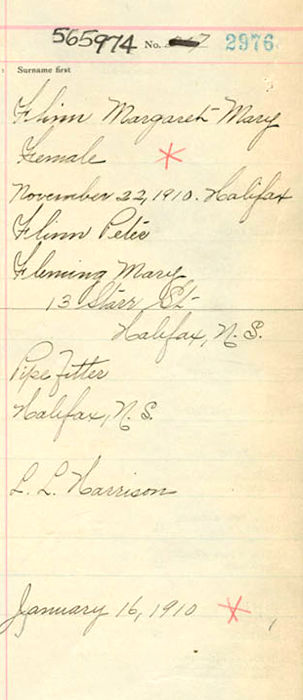 565974 No. 2976
Surname first
Flinn Margaret Mary
Female
November 22, 1910. Halifax
Flinn Peter
Fleming Mary
13 Starr St-
Halifax, N.S.
Pipe Fitter
Halifax, N.S.
L. L. Harrison
January 16, 1910